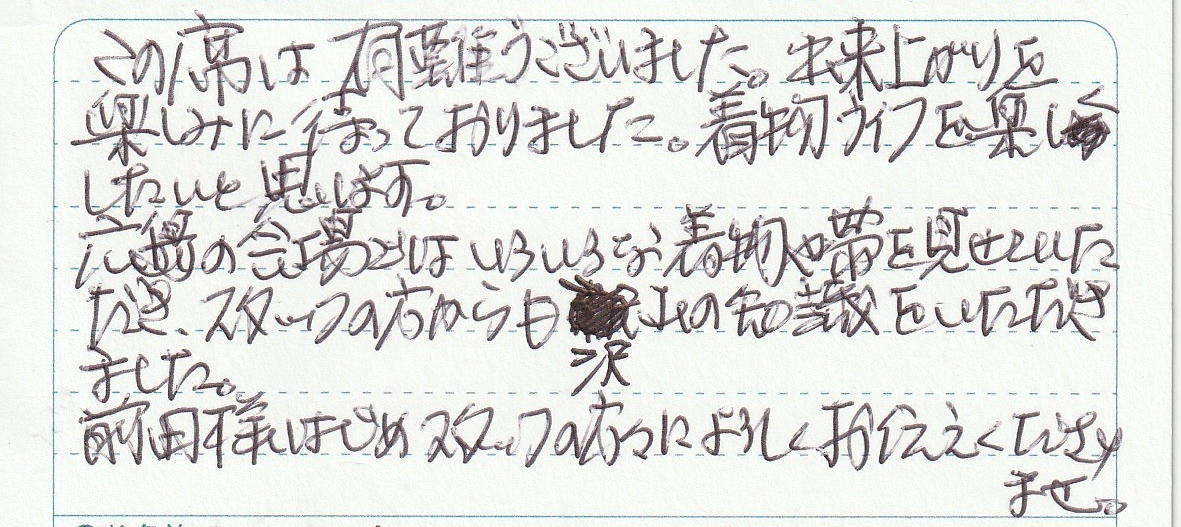 この席は有難うございました。出来上がりを
楽しみに待っておりました。着物ライフを楽しく
したいと思います。
広場の会場ではいろいろな着物や帯を見せていた
だき、スタッフの方からも沢山の知識をいただき
ました。
前田様はじめスタッフの方々によろしくお伝えくださり
ませ。